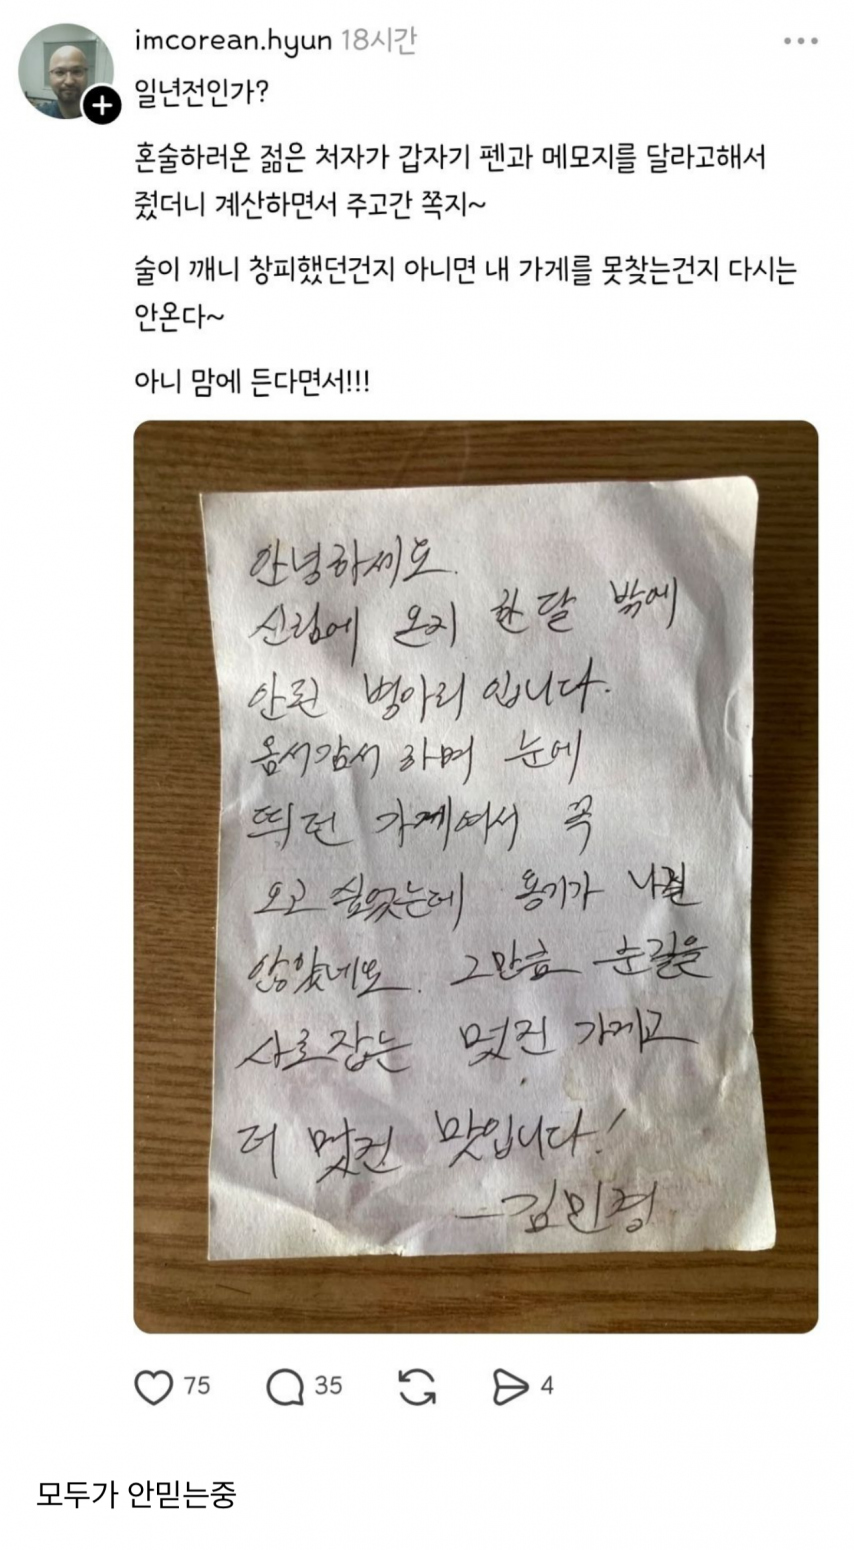 imcorean.hyun 18시간
일년전인가?
혼술하러온 젊은 처자가 갑자기 펜과 메모지를 달라고해서
줬더니 계산하면서 주고간 쪽지~
술이 깨니 창피했던건지 아니면 내 가게를 못찾는건지 다시는
안온다~
아니 맘에 든다면서!!!
안녕하세요.
신림에 온지 한 달 밖에
안된 병아리 입니다.
옴서감서 하며 눈에
띄던 가게여서 꼭
오고 싶었는데 용기가 나질
않았네요. 그만큼 눈길을
사로잡는 멋진 가게고
더 멋진 맛입니다!
75 35 4
모두가 안믿는중